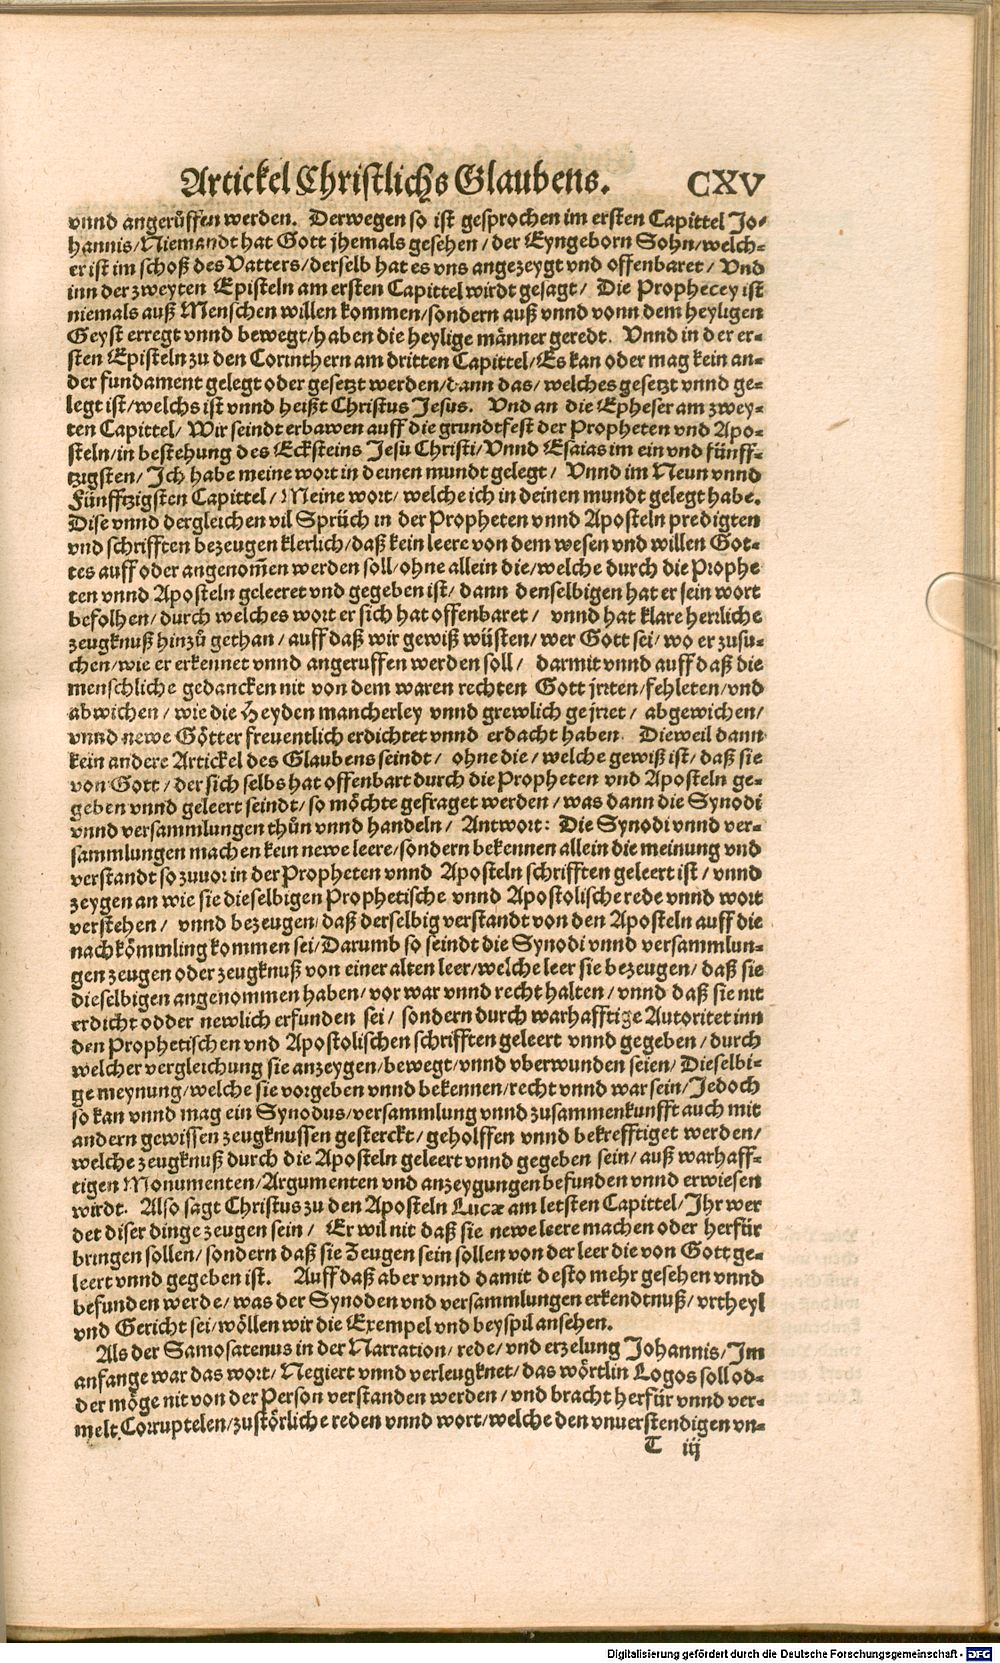 Artickel Christlichs Glaubens. CXV
vnnd angerůffen werden. Derwegen so ist gesprochen im ersten Capittel Jo-
hannis/Niemandt hat Gott jhemals gesehen/der Eyngeborn Sohn/welch-
er ist im schoß des Vatters/derselb hat es vns angezeygt vnd offenbaret/ Vnd
inn der zweyten Episteln am ersten Capittel wirdt gesagt/ Die Prophecey ist
niemals auß Menschen willen kommen/sondern auß vnnd vonn dem heyligen
Geyst erregt vnnd bewegt/haben die heylige männer geredt. Vnnd in der er-
sten Episteln zu den Corinthern am dritten Capittel/Es kan oder mag kein an-
der fundament gelegt oder gesetzt werden/dann das/welches gesetzt vnnd ge-
legt ist/welchs ist vnnd heißt Christus Jesus. Vnd an die Epheser am zwey-
ten Capittel/ Wir seindt erbawen auff die grundtfest der Propheten vnd Apo-
steln/in bestehung des Ecksteins Jesu Christi/Vnnd Esaias im ein vnd fünff-
tzigsten/ Ich habe meine wort in deinen mundt gelegt/ Vnnd im Neun vnnd
Fünfftzigsten Capittel/ Meine wort/welche ich in deinen mundt gelegt habe.
Dise vnnd dergleichen vil Sprüch in der Propheten vnnd Aposteln predigten
vnd schrifften bezeugen klerlich/daß kein leere von dem wesen vnd willen Got-
tes auff oder angenom̄en werden soll/ohne allein die/welche durch die Prophe
ten vnnd Aposteln geleeret vnd gegeben ist/dann denselbigen hat er sein wort
befolhen/durch welches wort er sich hat offenbaret/ vnnd hat klare herrliche
zeugknuß hinzů gethan/auff daß wir gewiß wüsten/wer Gott sei/wo er zusu-
chen/wie er erkennet vnnd angeruffen werden soll/ darmit vnnd auff daß die
menschliche gedancken nit von dem waren rechten Gott jrrten/fehleten/vnd
abwichen/wie die Heyden mancherley vnnd grewlich gejrret/ abgewichen/
vnnd newe Götter freuentlich erdichtet vnnd erdacht haben. Dieweil dann
kein andere Artickel des Glaubens seindt/ ohne die/welche gewiß ist/daß sie
von Gott/der sich selbs hat offenbart durch die Propheten vnd Aposteln ge-
geben vnnd geleert seindt/so möchte gefraget werden/was dann die Synodi
vnnd versammlungen thůn vnnd handeln/ Antwort: Die Synodi vnnd ver-
sammlungen machen kein newe leere/sondern bekennen allein die meinung vnd
verstandt so zuuor in der Propheten vnnd Aposteln schrifften geleert ist/vnnd
zeygen an wie sie dieselbigen Prophetische vnnd Apostolische rede vnnd wort
verstehen/ vnnd bezeugen/daß derselbig verstandt von den Aposteln auff die
nachkömmling kommen sei/Darumb so seindt die Synodi vnnd versammlun-
gen zeugen oder zeugknuß von einer alten leer/welche leer sie bezeugen/daß sie
dieselbigen angenommen haben/vor war vnnd recht halten/vnnd daß sie nit
erdicht odder newlich erfunden sei/ sondern durch warhafftige Autoritet inn
den Prophetischen vnd Apostolischen schrifften geleert vnnd gegeben/durch
welcher vergleichung sie anzeygen/bewegt/vnnd vberwunden seien/Dieselbi-
ge meynung/welche sie vorgeben vnnd bekennen/recht vnnd war sein/Jedoch
so kan vnnd mag ein Synodus/versammlung vnnd zusammenkunfft auch mit
andern gewissen zeugknussen gesterckt/geholffen vnnd bekrefftiget werden/
welche zeugknuß durch die Aposteln geleert vnnd gegeben sein/auß warhaff-
tigen Monumenten/Argumenten vnd anzeygungen befunden vnnd erwiesen
wirdt. Also sagt Christus zu den Aposteln Lucæ am letsten Capittel/Ihr wer
det diser dinge zeugen sein/ Er wil nit daß sie newe leere machen oder herfür
bringen sollen/sondern daß sie Zeugen sein sollen von der leer die von Gott ge-
leert vnnd gegeben ist. Auff daß aber vnnd damit desto mehr gesehen vnnd
befunden werde/was der Synoden vnd versammlungen erkendtnuß/vrtheyl
vnd Gericht sei/wöllen wir die Exempel vnd beyspil ansehen.
Als der Samosatenus in der Narration/rede/vnd erzelung Johannis/Im
anfange war das wort/Negiert vnnd verleugknet/das wörtlin Logos soll od-
der möge nit von der Person verstanden werden/vnd bracht herfür vnnd ver-
melt Corruptelen/zustörliche reden vnnd wort/welche den vnuerstendigen vn-
T iij
Digitalisierung gefördert durch die Deutsche Forschungsgemeinschaft - DFG